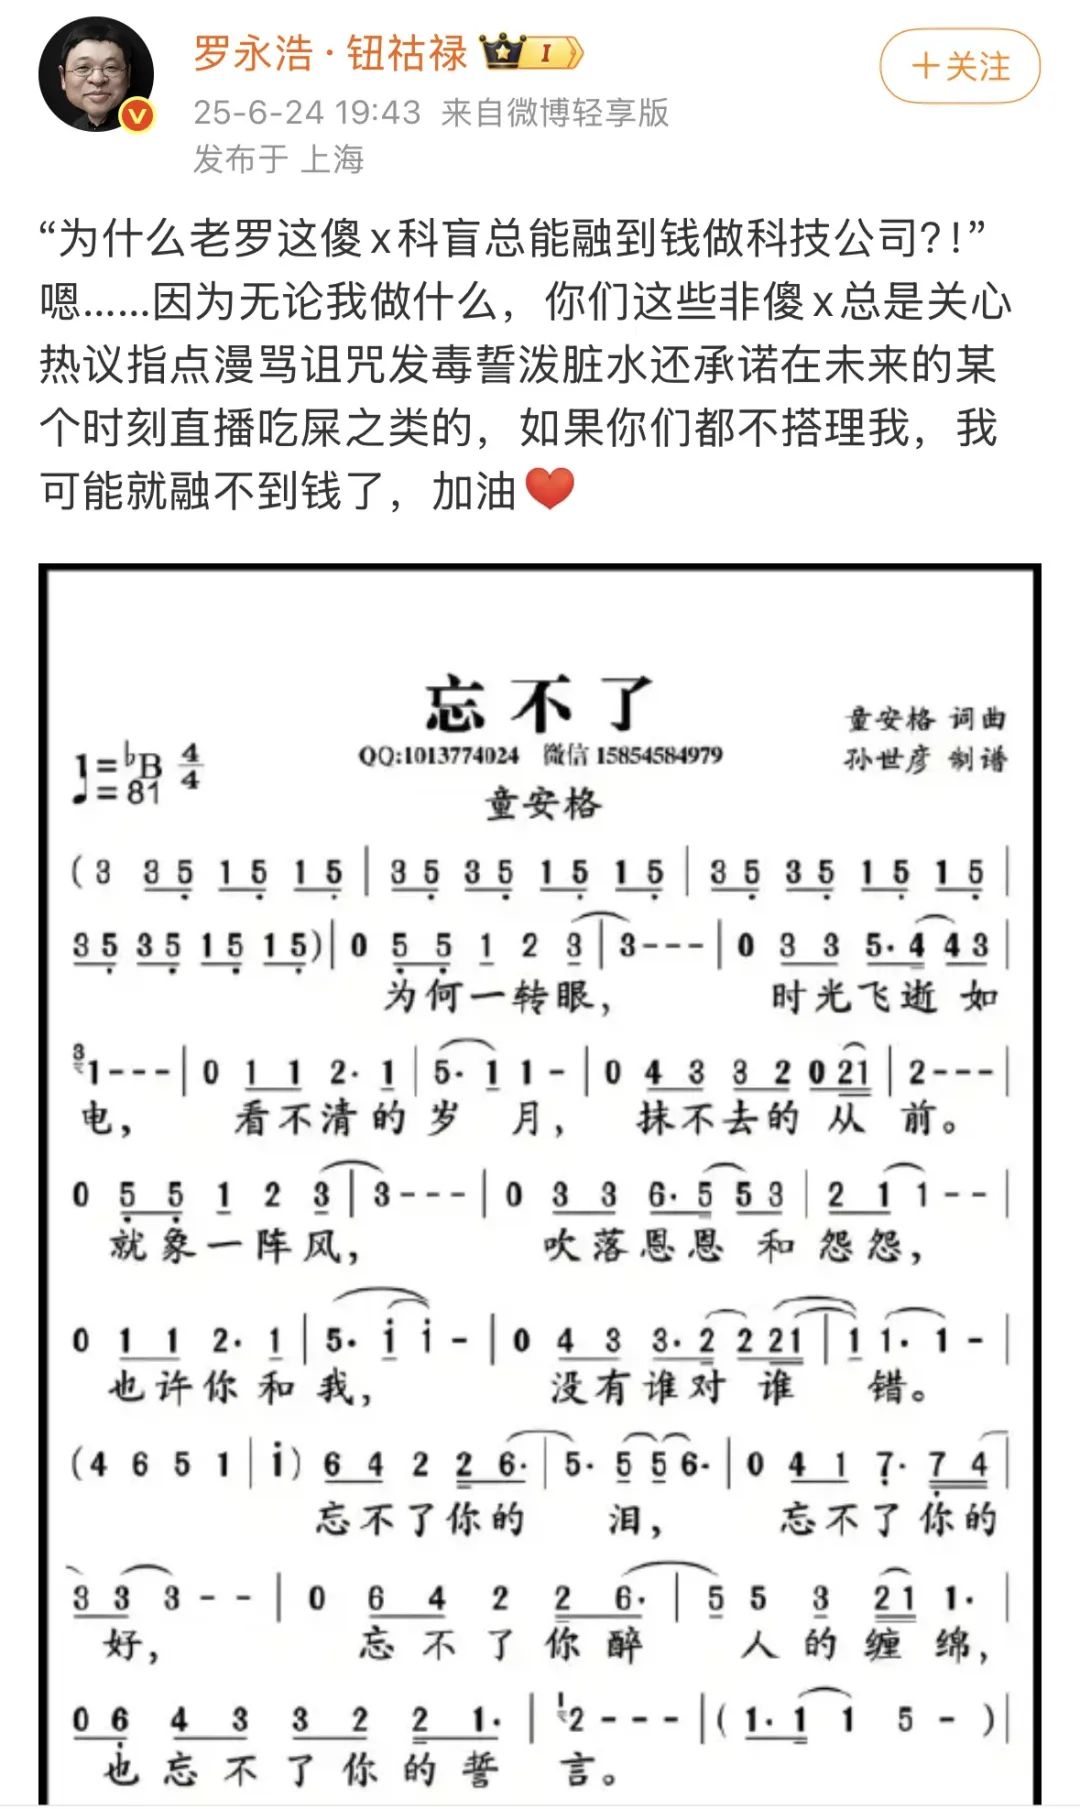 罗永浩·钮祜禄 I
+关注
25-6-24 19:43 来自微博轻享版
发布于 上海
“为什么老罗这傻x科盲总能融到钱做科技公司?!”
嗯……因为无论我做什么，你们这些非傻x总是关心
热议指点漫骂诅咒发毒誓泼脏水还承诺在未来的某
个时刻直播吃屎之类的，如果你们都不搭理我，我
可能就融不到钱了，加油❤️
忘不了
童安格 词曲
QQ:1013774024 微信 15854584979
孙世彦 制谱
1=♭B 4/4
♩=81
童安格
(3 3 5 1 5 1 5 | 3 5 3 5 1 5 1 5 | 3 5 3 5 1 5 1 5 |
3 5 3 5 1 5 1 5) | 0 5 5 1 2 3 | 3 - - - | 0 3 3 5· 4 4 3 |
为何一转眼， 时光飞逝 如
3 1 - - - | 0 1 1 2· 1 | 5· 1 1 - | 0 4 3 3 2 0 2 1 | 2 - - - |
电， 看不清的岁 月， 抹不去的 从 前。
0 5 5 1 2 3 | 3 - - - | 0 3 3 6· 5 5 3 | 2 1 1 - - |
就象一阵风， 吹落恩恩 和 怨怨，
0 1 1 2· 1 | 5· i i - | 0 4 3 3· 2 2 2 1 | 1 1· 1 - |
也许你和我， 没有谁对 谁 错。
(4 6 5 1 | i) 6 4 2 2 6· | 5· 5 5 6· | 0 4 1 7· 7 4 |
忘不了你的 泪， 忘不了你的
3 3 3 - - | 0 6 4 2 2 6· | 5 5 3 2 1 1· |
好， 忘不了你醉 人的缠绵，
0 6 4 3 3 2 2 1· | 1 2 - - - | (1· 1 1 5 - ) |
也忘不了你的誓 言。